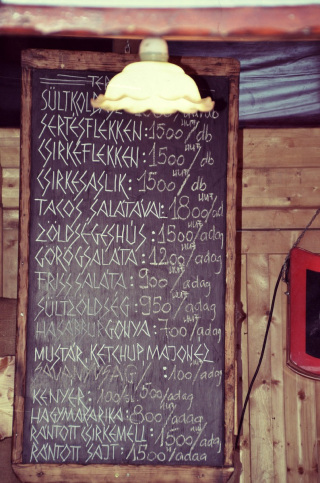 SÜLTKOLBÁSZ
SERTÉSFLEKKEN: 1500 HUF/db
CSIRKEFLEKKEN: 1500 HUF/db
CSIRKESASLIK: 1500 HUF/db
TACOS SALÁTÁVAL 1800 HUF/ad
ZÖLDSÉGESHÚS: 1500 HUF/adag
GÖRÖGSALÁTA: 1200 HUF/adag
FRISS SALÁTA: 900 HUF/adag
SÜLTZÖLDSÉG: 950 HUF/adag
HASÁBBURGONYA: 700 HUF/adag
MUSTÁR, KETCHUP MAJONÉZ
SAVANYÚSÁG / : 100 /adag
KENYÉR: 500/adag
HAGYMAKARIKA: 800 HUF/adag
RÁNTOTT CSIRKEMELL: 1500 HUF/adag
RÁNTOTT SAJT: 1500 HUF/adag